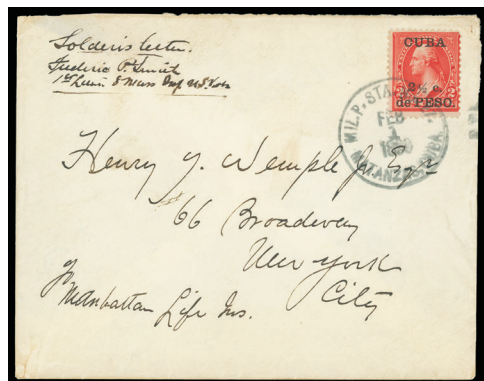 Soldier's letter.
Frederic P. Smith
1st Lieut 8 Mass Inf. U.S. Vols
CUBA
2½ c.
de PESO.
MIL. P. STA.
FEB
1
MATANZAS, CUBA
Henry Y. Wemple Jr Esqr
66 Broadway
New York
City
Manhattan Life Ins.